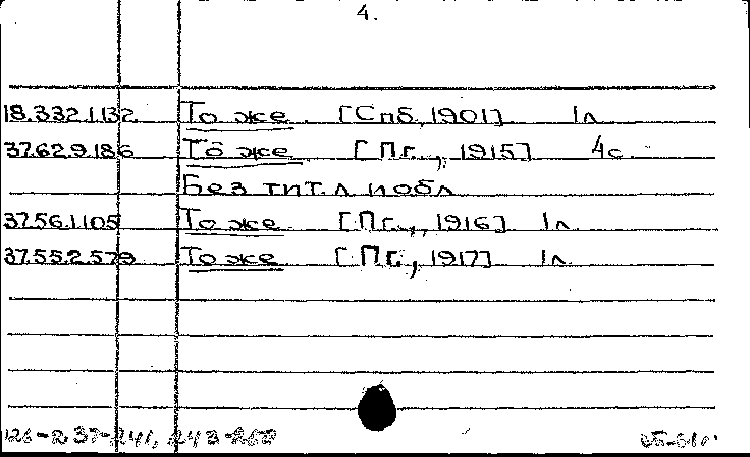 4.
18.332.1.132 То же [Спб, 1901] 1л
37.62.9.186 То же [Пг., 1915] 4с.
Без тит. л и обл
37.56.1.105 То же [Пг., 1916] 1л
37.55.2.579 То же [Пг., 1917] 1л.